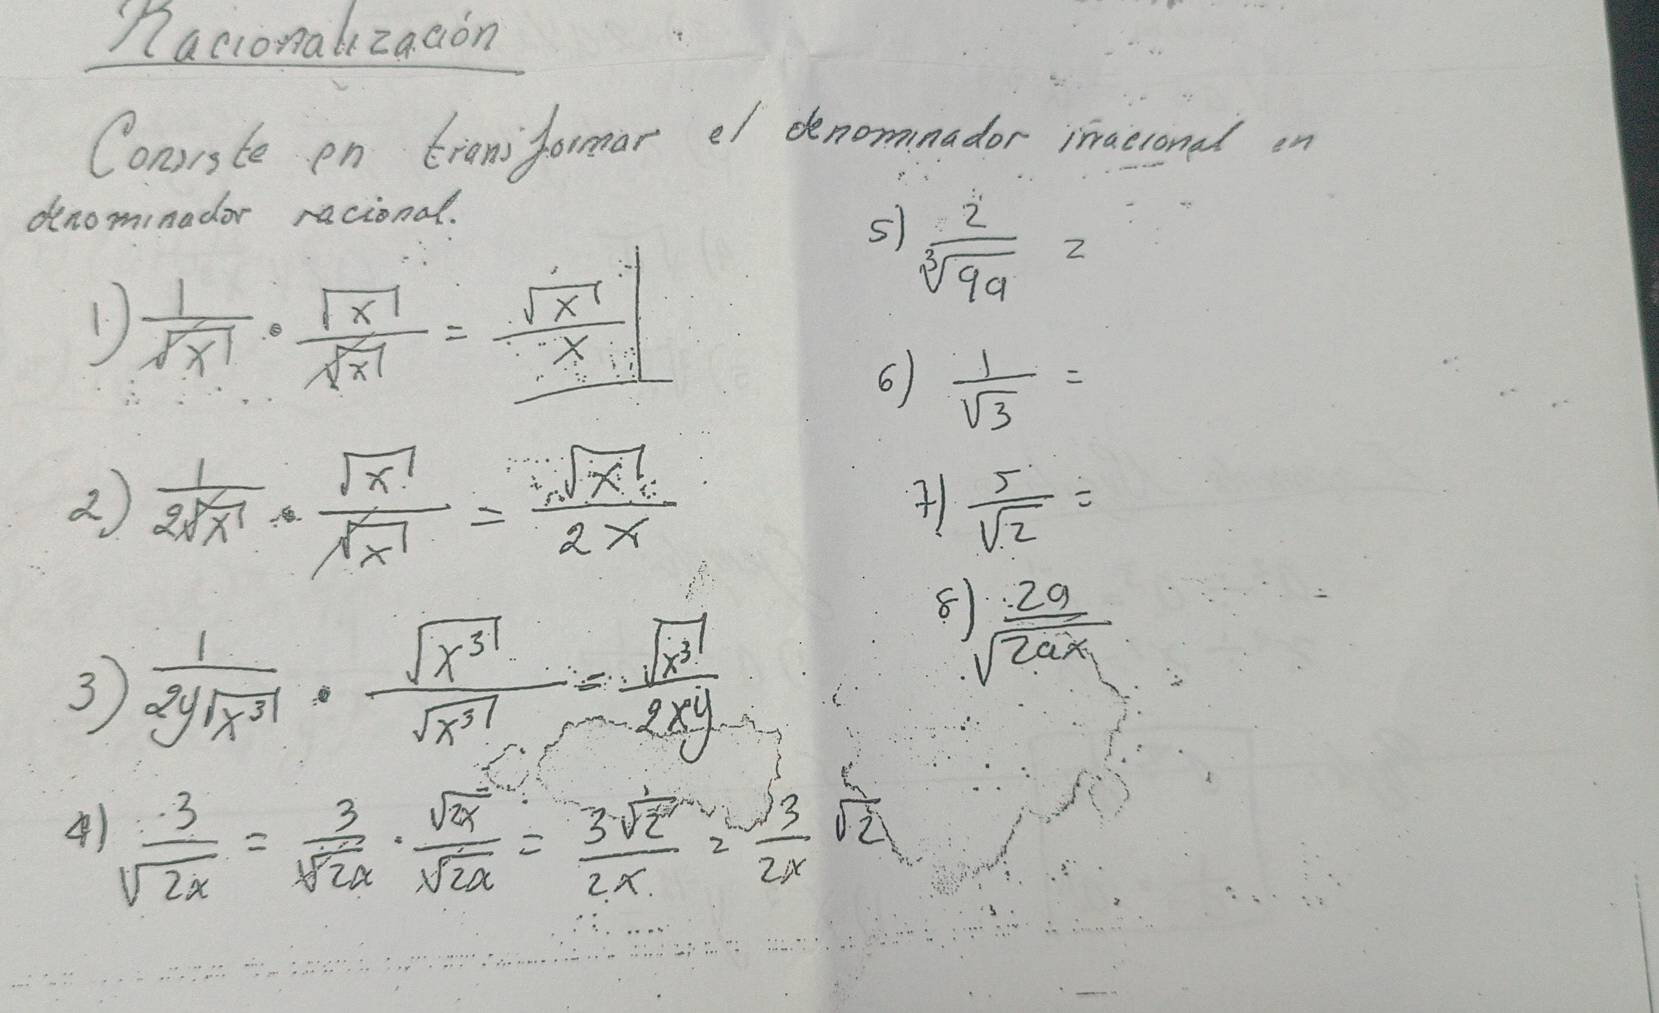 Racionalización
Consiste en transformar el denominador irracional en
denominador racional.
1) 1/√x · √x/√x = √x/x
2) 1/2√x · √x/√x = √x/2x
3) 1/2y√x³ · √x³/√x³ = √x³/2xy
4) 3/√2x = 3/√2x · √2x/√2x = 3√2/2x = 3/2x √2
5) 2/∛9a =
6) 1/√3 =
7) 5/√2 =
8) 2a/√2ax